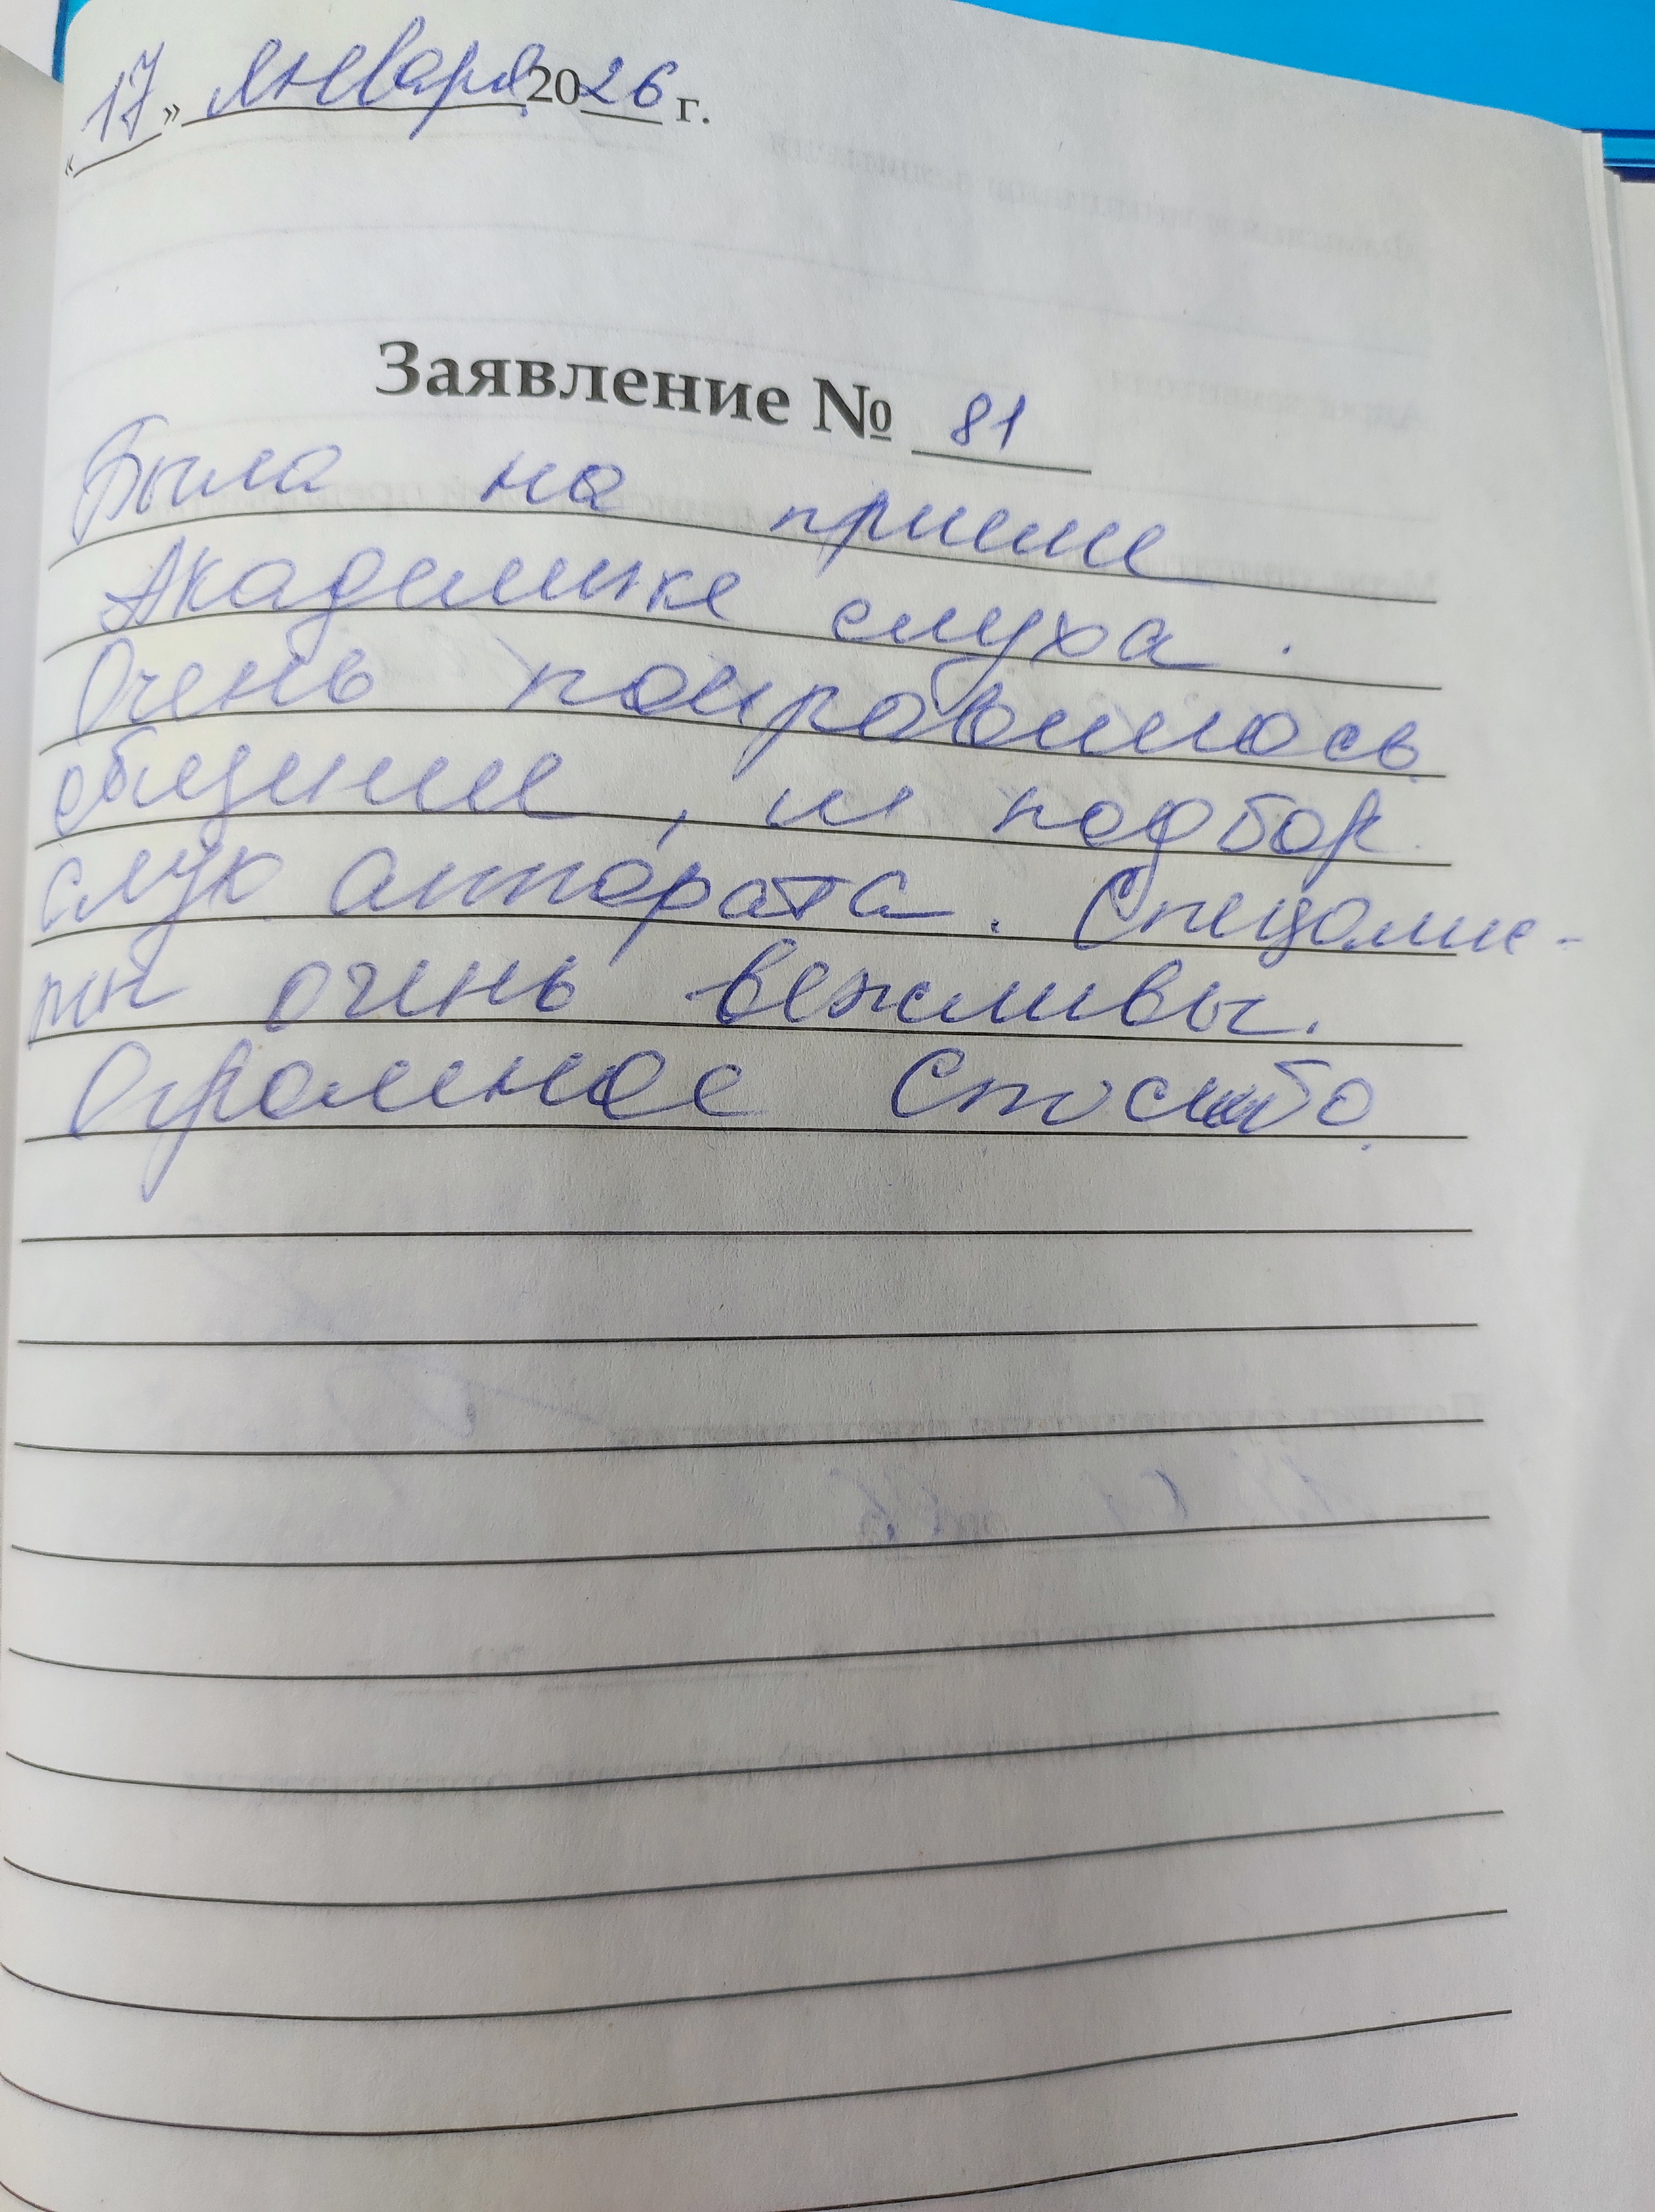 «17» января 2026 г.
Заявление № 81
Была на приеме
Академике слуха.
Очень понравилось
общение, и подбор
слух аппарата. Специалис-
ты очень вежливы.
Огромное Спасибо.